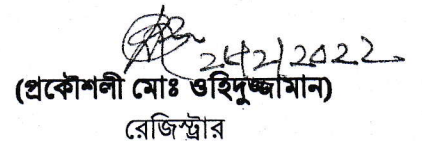 24/2/2022
(প্রকৌশলী মোঃ ওহিদুজ্জামান)
রেজিস্ট্রার